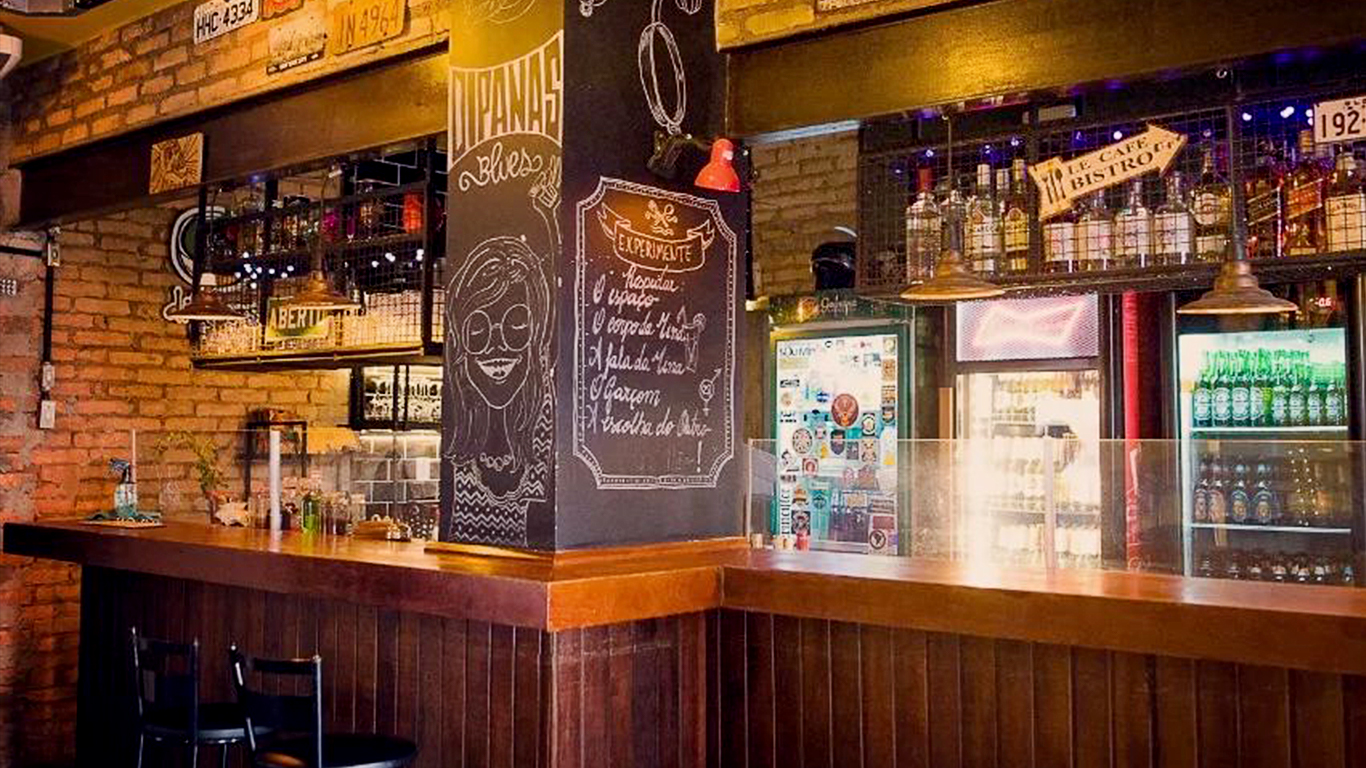 HHC 4334
DIPANAS
Blues
EXPERIMENTE
Respeitar
O espaço
O corpo da Mina
A fala da Mina
O Garçom
A escolha do Outro
!
ABERTO
LE CAFE
BISTRO
192